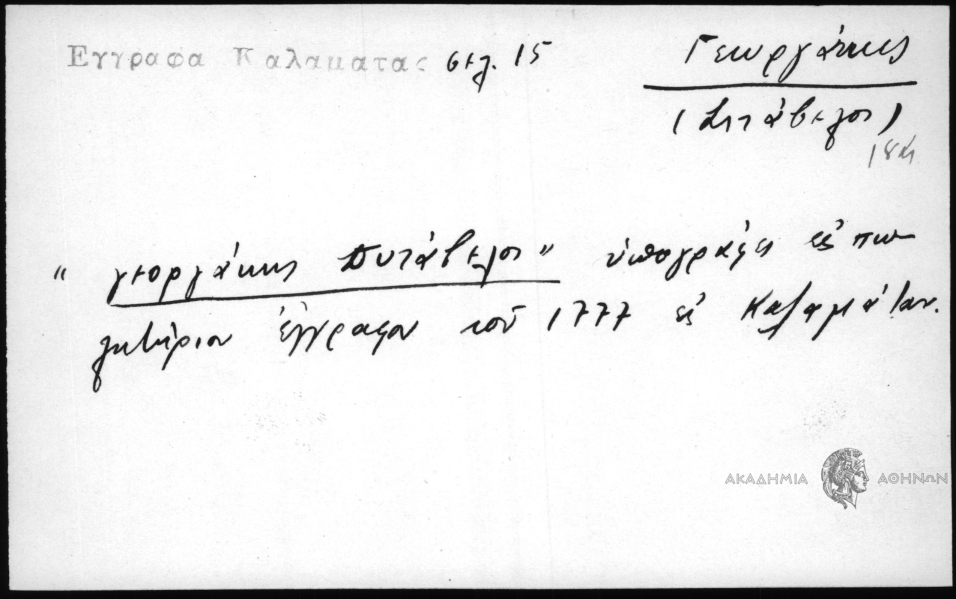 Εγγραφα Καλαματας σελ. 15
Γεωργάκης
184
" γεοργάκης " ὑπογράφει εἰς πω-
λητήριον ἔγγραφον τοῦ 1777 εἰς Καλαμάταν.
ΑΚΑΔΗΜΙΑ ΑΘΗΝΩΝ